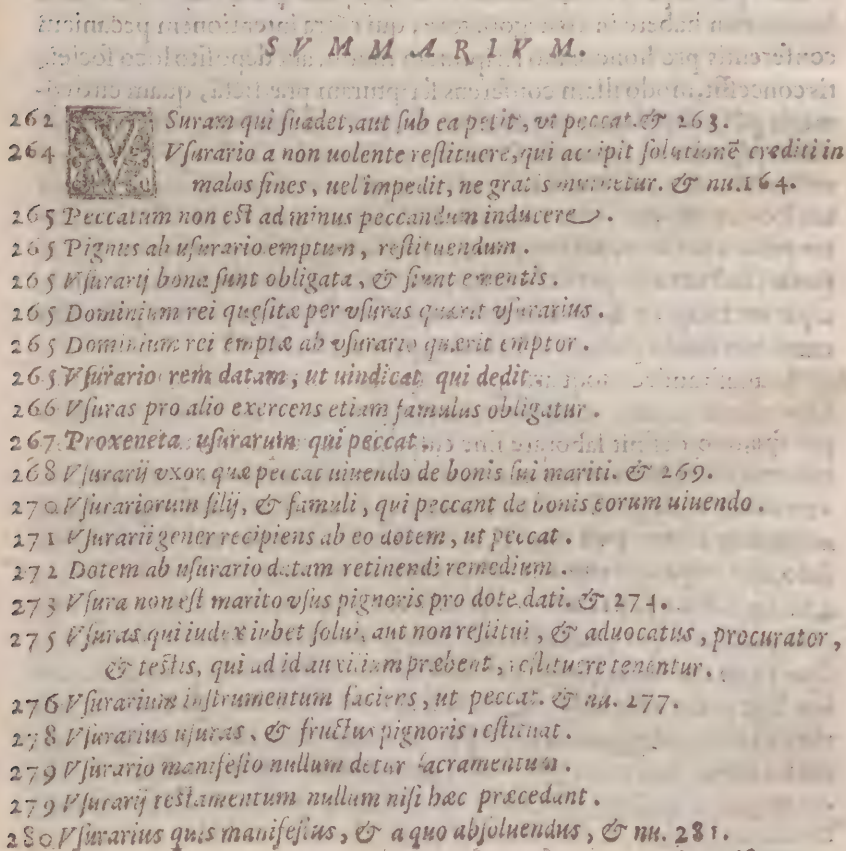 SVMMARIVM.
262 VSuram qui ſuadet, aut ſub ea petit, vt peccat. & 263.
264 Vſurario a non uolente reſtituere, qui accipit ſolutionē crediti in
malos fines, uel impedit, ne gratis mutuetur. & nu.164.
265 Peccatum non eſt ad minus peccandum inducere.
265 Pignus ab uſurario emptum, reſtituendum.
265 Vſurarij bona ſunt obligata, & fiunt ementis.
265 Dominium rei queſitæ per vſuras quærit vſurarius.
265 Dominium rei emptæ ab vſurario quærit emptor.
265 Vſurario rem datam, ut uindicat, qui dedit.
266 Vſuras pro alio exercens etiam famulus obligatur.
267 Proxeneta uſurarum qui peccat.
268 Vſurarij vxor quæ peccat uiuendo de bonis ſui mariti. & 269.
270 Vſurariorum filij, & famuli, qui peccant de bonis eorum uiuendo.
271 Vſurarii gener recipiens ab eo dotem, ut peccat.
272 Dotem ab uſurario datam retinendi remedium.
273 Vſura non eſt marito vſus pignoris pro dote dati. & 274.
275 Vſuras qui iudex iubet ſolui, aut non reſtitui, & aduocatus, procurator,
& teſtis, qui ad id auxilium præbent, reſtituere tenentur.
276 Vſurarium inſtrumentum faciens, ut peccat. & nu. 277.
278 Vſurarius uſuras, & fructus pignoris reſtituat.
279 Vſurario manifeſto nullum detur ſacramentum.
279 Vſurarij teſtamentum nullum niſi hæc præcedant.
280 Vſurarius quis manifeſtus, & a quo abſoluendus, & nu. 281.